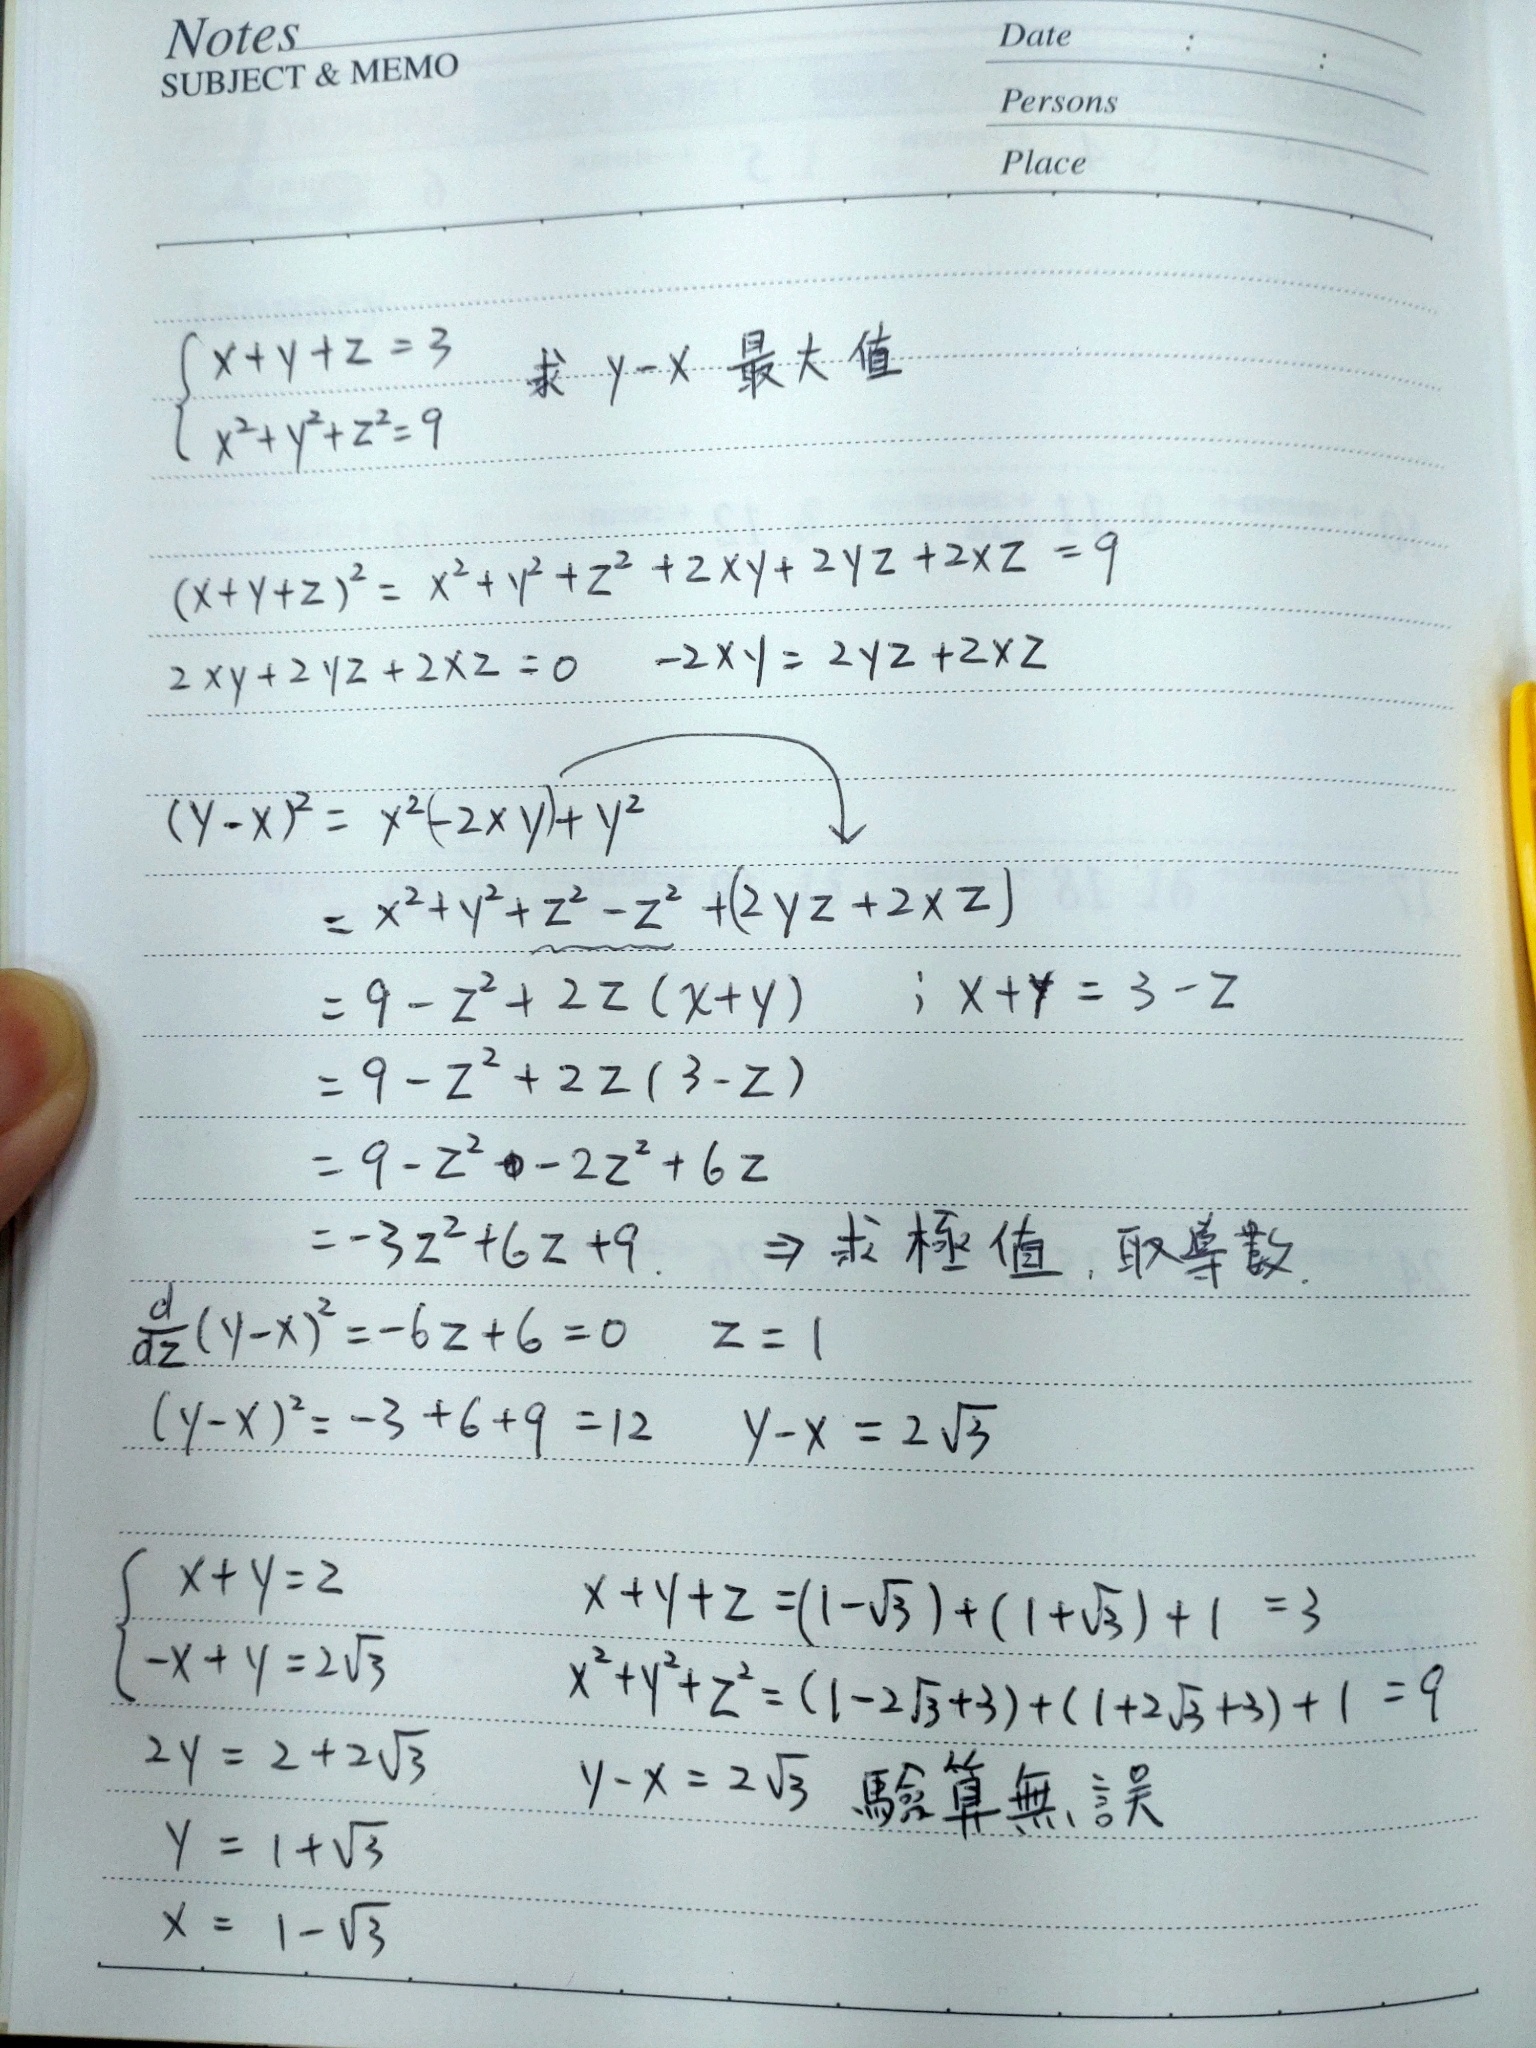 Notes
SUBJECT & MEMO
Date : :
Persons
Place
{ x+y+z=3 求 y-x 最大值
x²+y²+z²=9
(x+y+z)² = x²+y²+z²+2xy+2yz+2xz = 9
2xy+2yz+2xz=0 -2xy = 2yz+2xz
(y-x)² = x²(-2xy)+y²
= x²+y²+z²-z²+(2yz+2xz)
= 9-z²+2z(x+y) ; x+y = 3-z
= 9-z²+2z(3-z)
= 9-z²-2z²+6z
= -3z²+6z+9. ⇒ 求極值, 取導數.
d/dz (y-x)² = -6z+6 = 0 z = 1
(y-x)² = -3+6+9 = 12 y-x = 2√3
{ x+y=2 x+y+z = (1-√3)+(1+√3)+1 = 3
-x+y=2√3 x²+y²+z² = (1-2√3+3)+(1+2√3+3)+1 = 9
2y = 2+2√3 y-x = 2√3 驗算無誤
y = 1+√3
x = 1-√3